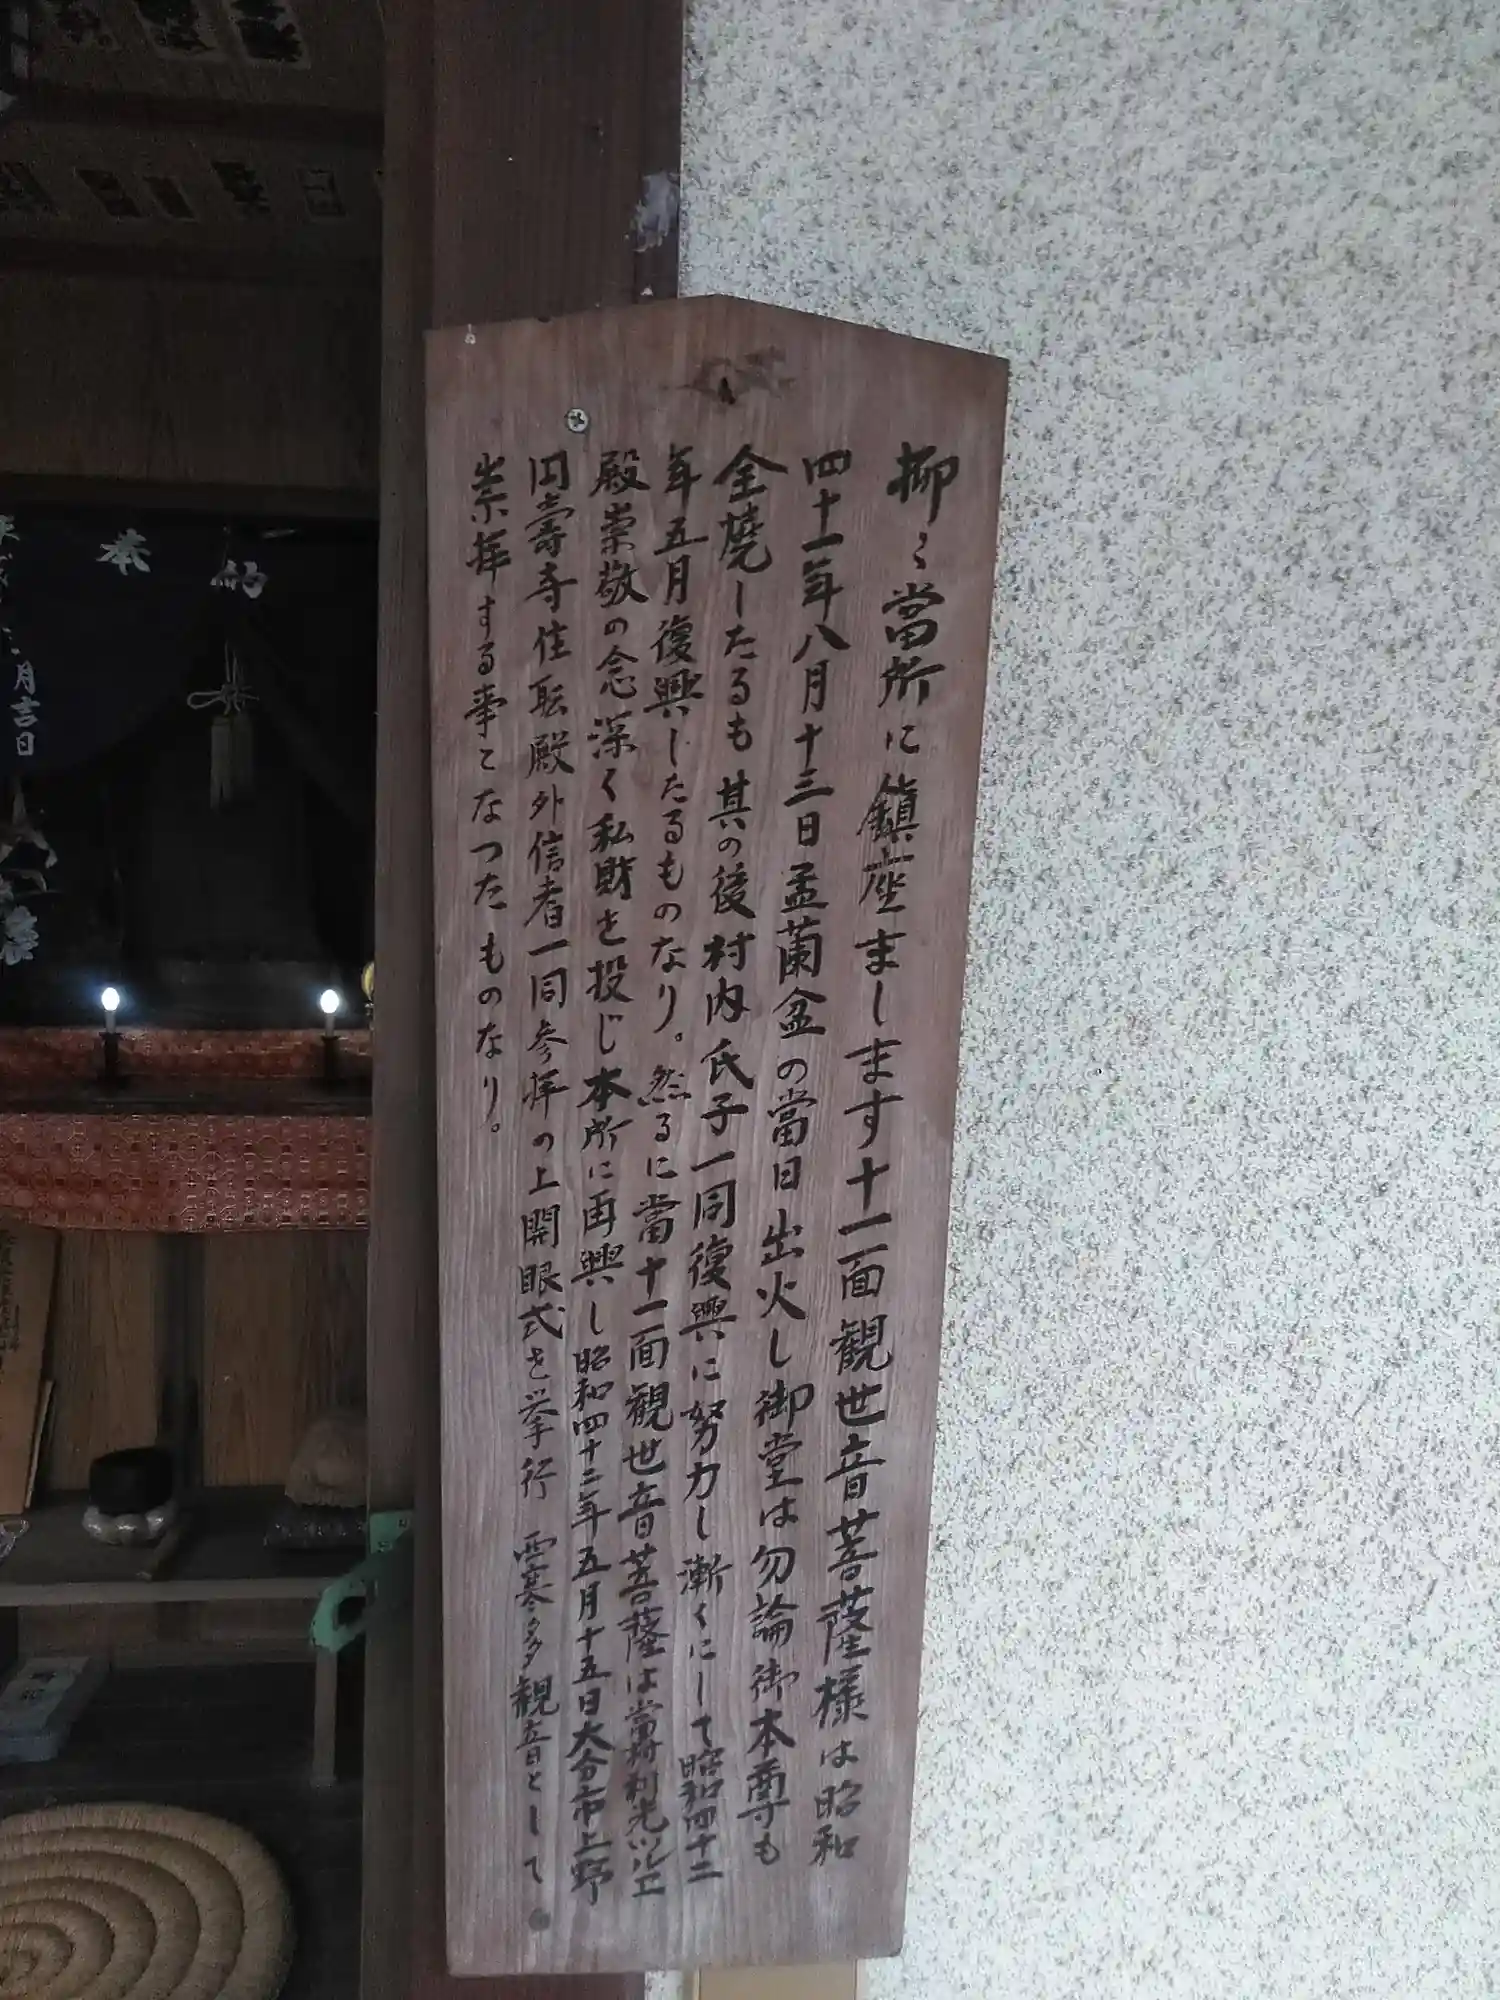 抑々當所に鎮座まします十一面観世音菩薩様は昭和
四十一年八月十三日盂蘭盆の當日出火し御堂は勿論御本尊も
全焼したるも其の後村内氏子一同復興に努力し漸くにして昭和四十二
年五月復興したるものなり。然るに當十一面観世音菩薩は當村利光ツルヱ
殿崇敬の念深く私財を投じ本所に再興し昭和四十二年五月十五日大分市上野
円壽寺住職殿外信者一同参拝の上開眼式を挙行 霊寒多観音として
崇拝する事となつたものなり。
奉納
月吉日